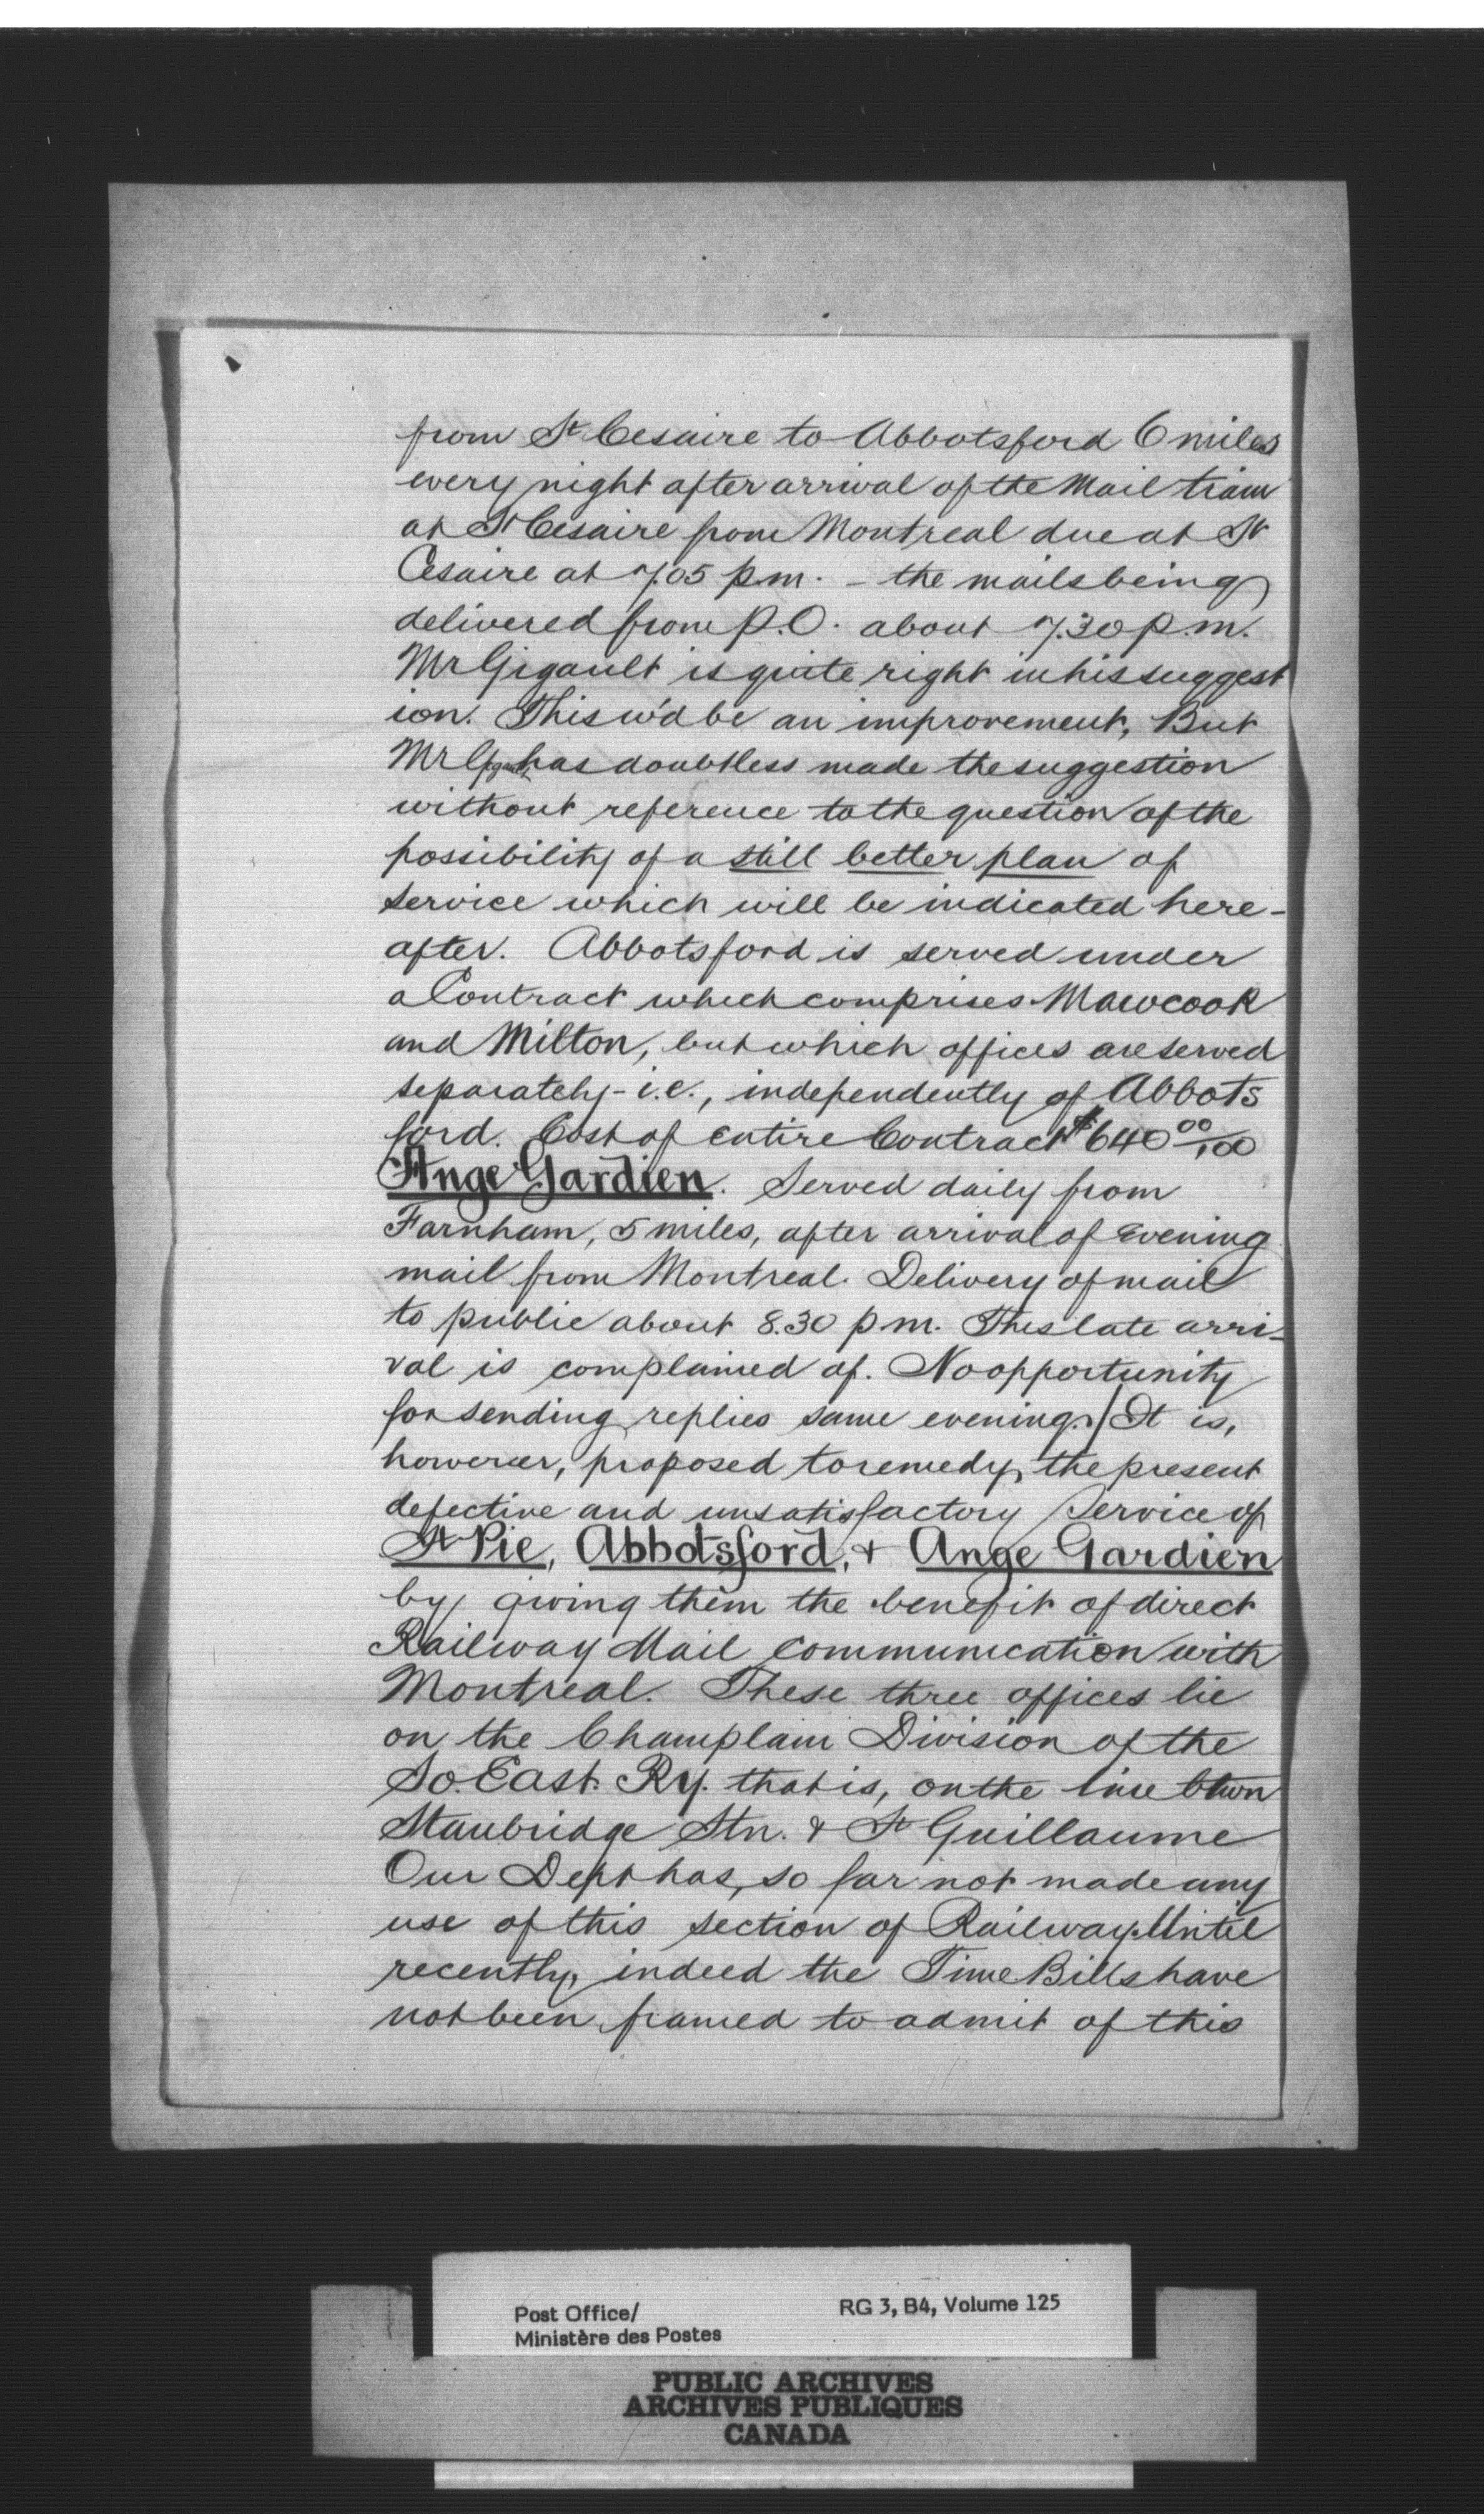 from St Cesaire to Abbotsford 6 miles
every night after arrival of the Mail train
at St Cesaire from Montreal due at St
Cesaire at 7.05 p.m. - the mails being
delivered from P.O. about 7.30 p.m.
Mr Gigault is quite right in his suggest
ion. This w'd be an improvement, But
Mr Gigault has doubtless made the suggestion
without reference to the question of the
possibility of a still better plan of
service which will be indicated here-
after. Abbotsford is served under
a Contract which comprises Mawcook
and Milton, but which offices are served
separately - i.e., independently of Abbots
ford. Cost of entire Contract $640 00/100
Ange Gardien. Served daily from
Farnham, 5 miles, after arrival of Evening
mail from Montreal. Delivery of mail
to public about 8.30 p.m. This late arri-
val is complained of. No opportunity
for sending replies same evening. / It is,
however, proposed to remedy the present
defective and unsatisfactory service of
St Pie, Abbotsford, + Ange Gardien
by giving them the benefit of direct
Railway Mail communication with
Montreal. These three offices lie
on the Champlain Division of the
So. East. Ry. that is, on the line btwn
Stanbridge Stn. & St Guillaume
Our Dept has, so far not made any
use of this section of Railway. Until
recently, indeed the Time Bills have
not been framed to admit of this
Post Office/
Ministère des Postes
RG 3, B4, Volume 125
PUBLIC ARCHIVES
ARCHIVES PUBLIQUES
CANADA